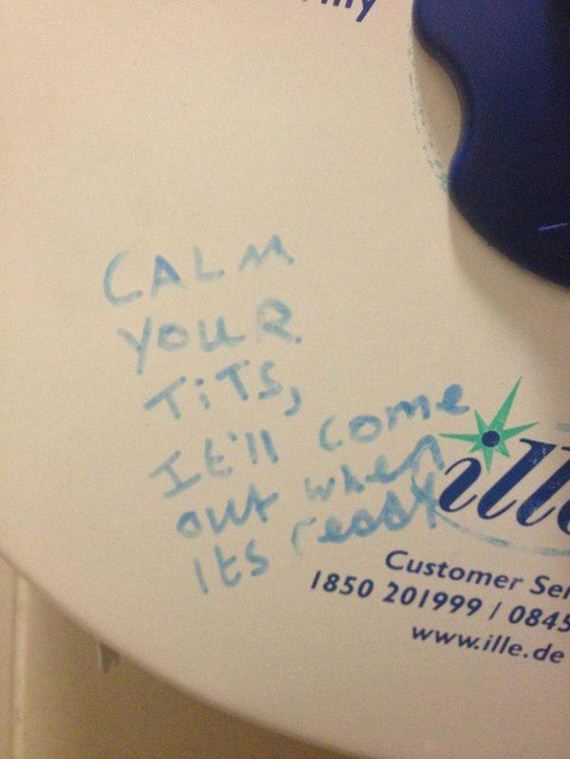 CALM
YOUR
TiTS,
It'll come
out when
Its ready
ille
Customer Ser
1850 201999 / 0845
www.ille.de